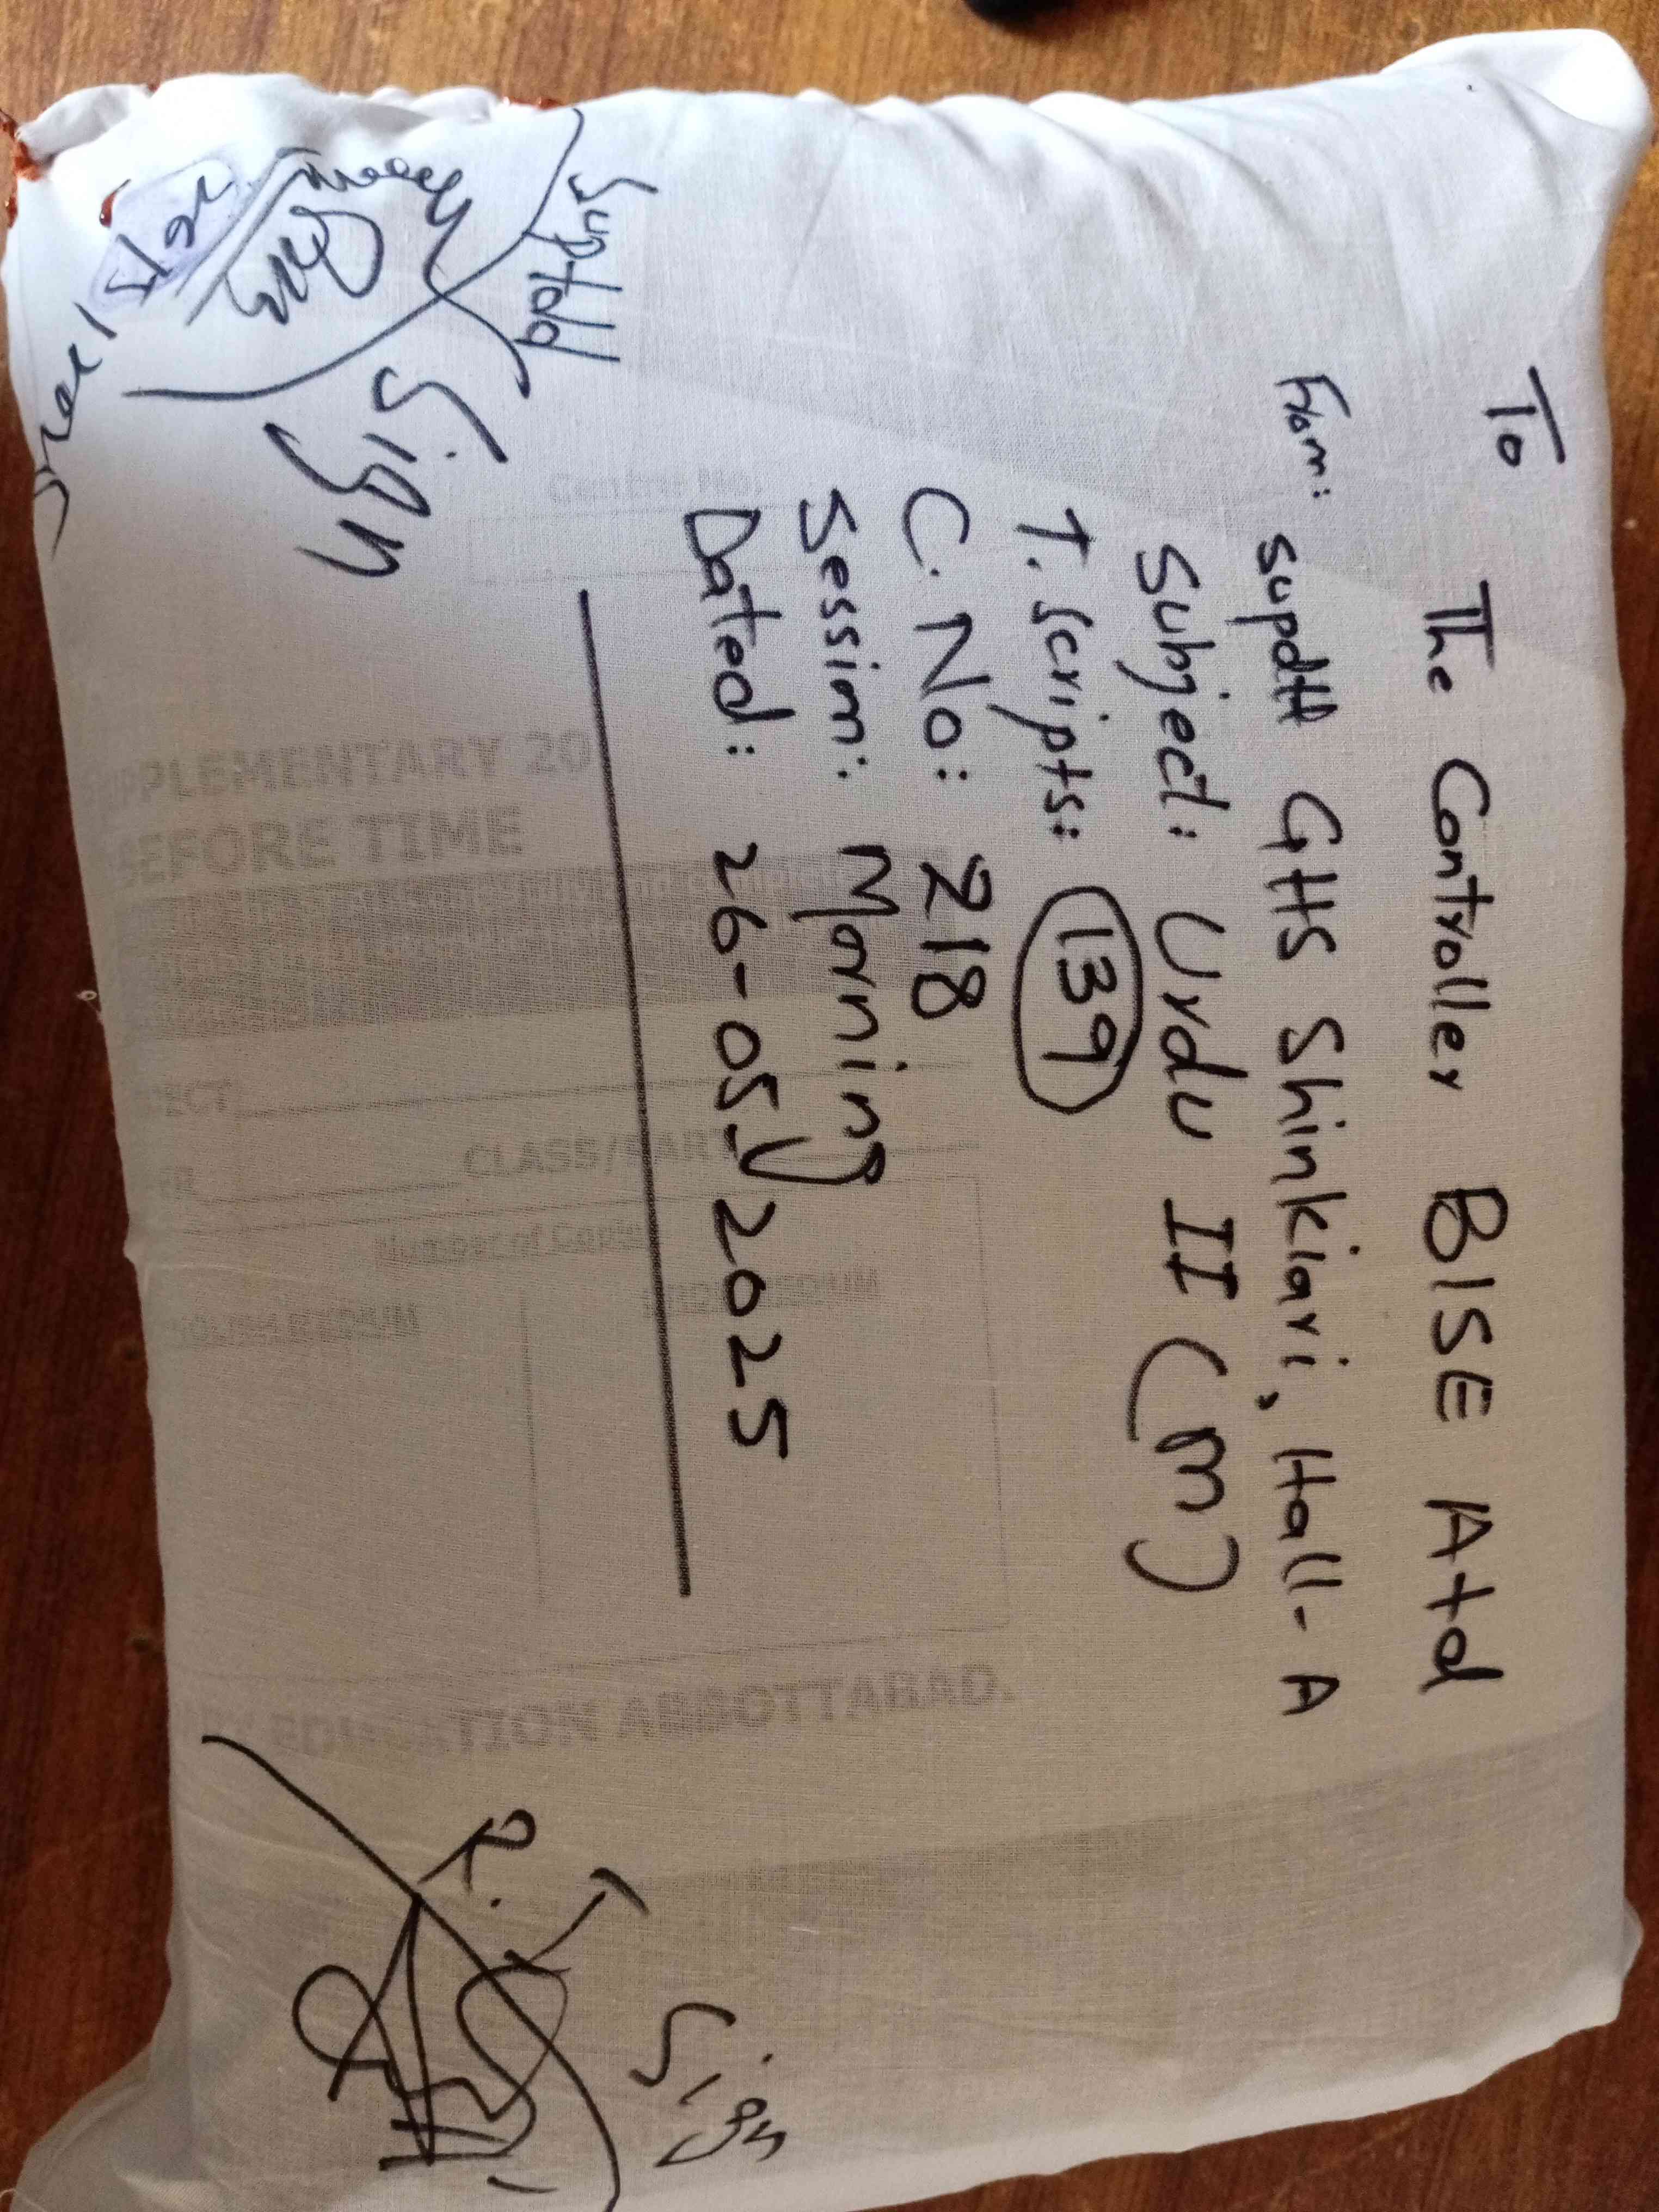 To The Controller BISE Atd
From: supdtt GHS Shinkiari, Hall-A
Subject: Urdu II (m)
T. Scripts: 139
C.No: 218
Session: Morning
Dated: 26-05-2025
Suptdd
Sign
R.I
Sign
Centre No.
SUPPLEMENTARY 20
BEFORE TIME
CLASS/PART
Number of Copies
EDUCATION ABBOTTABAD.